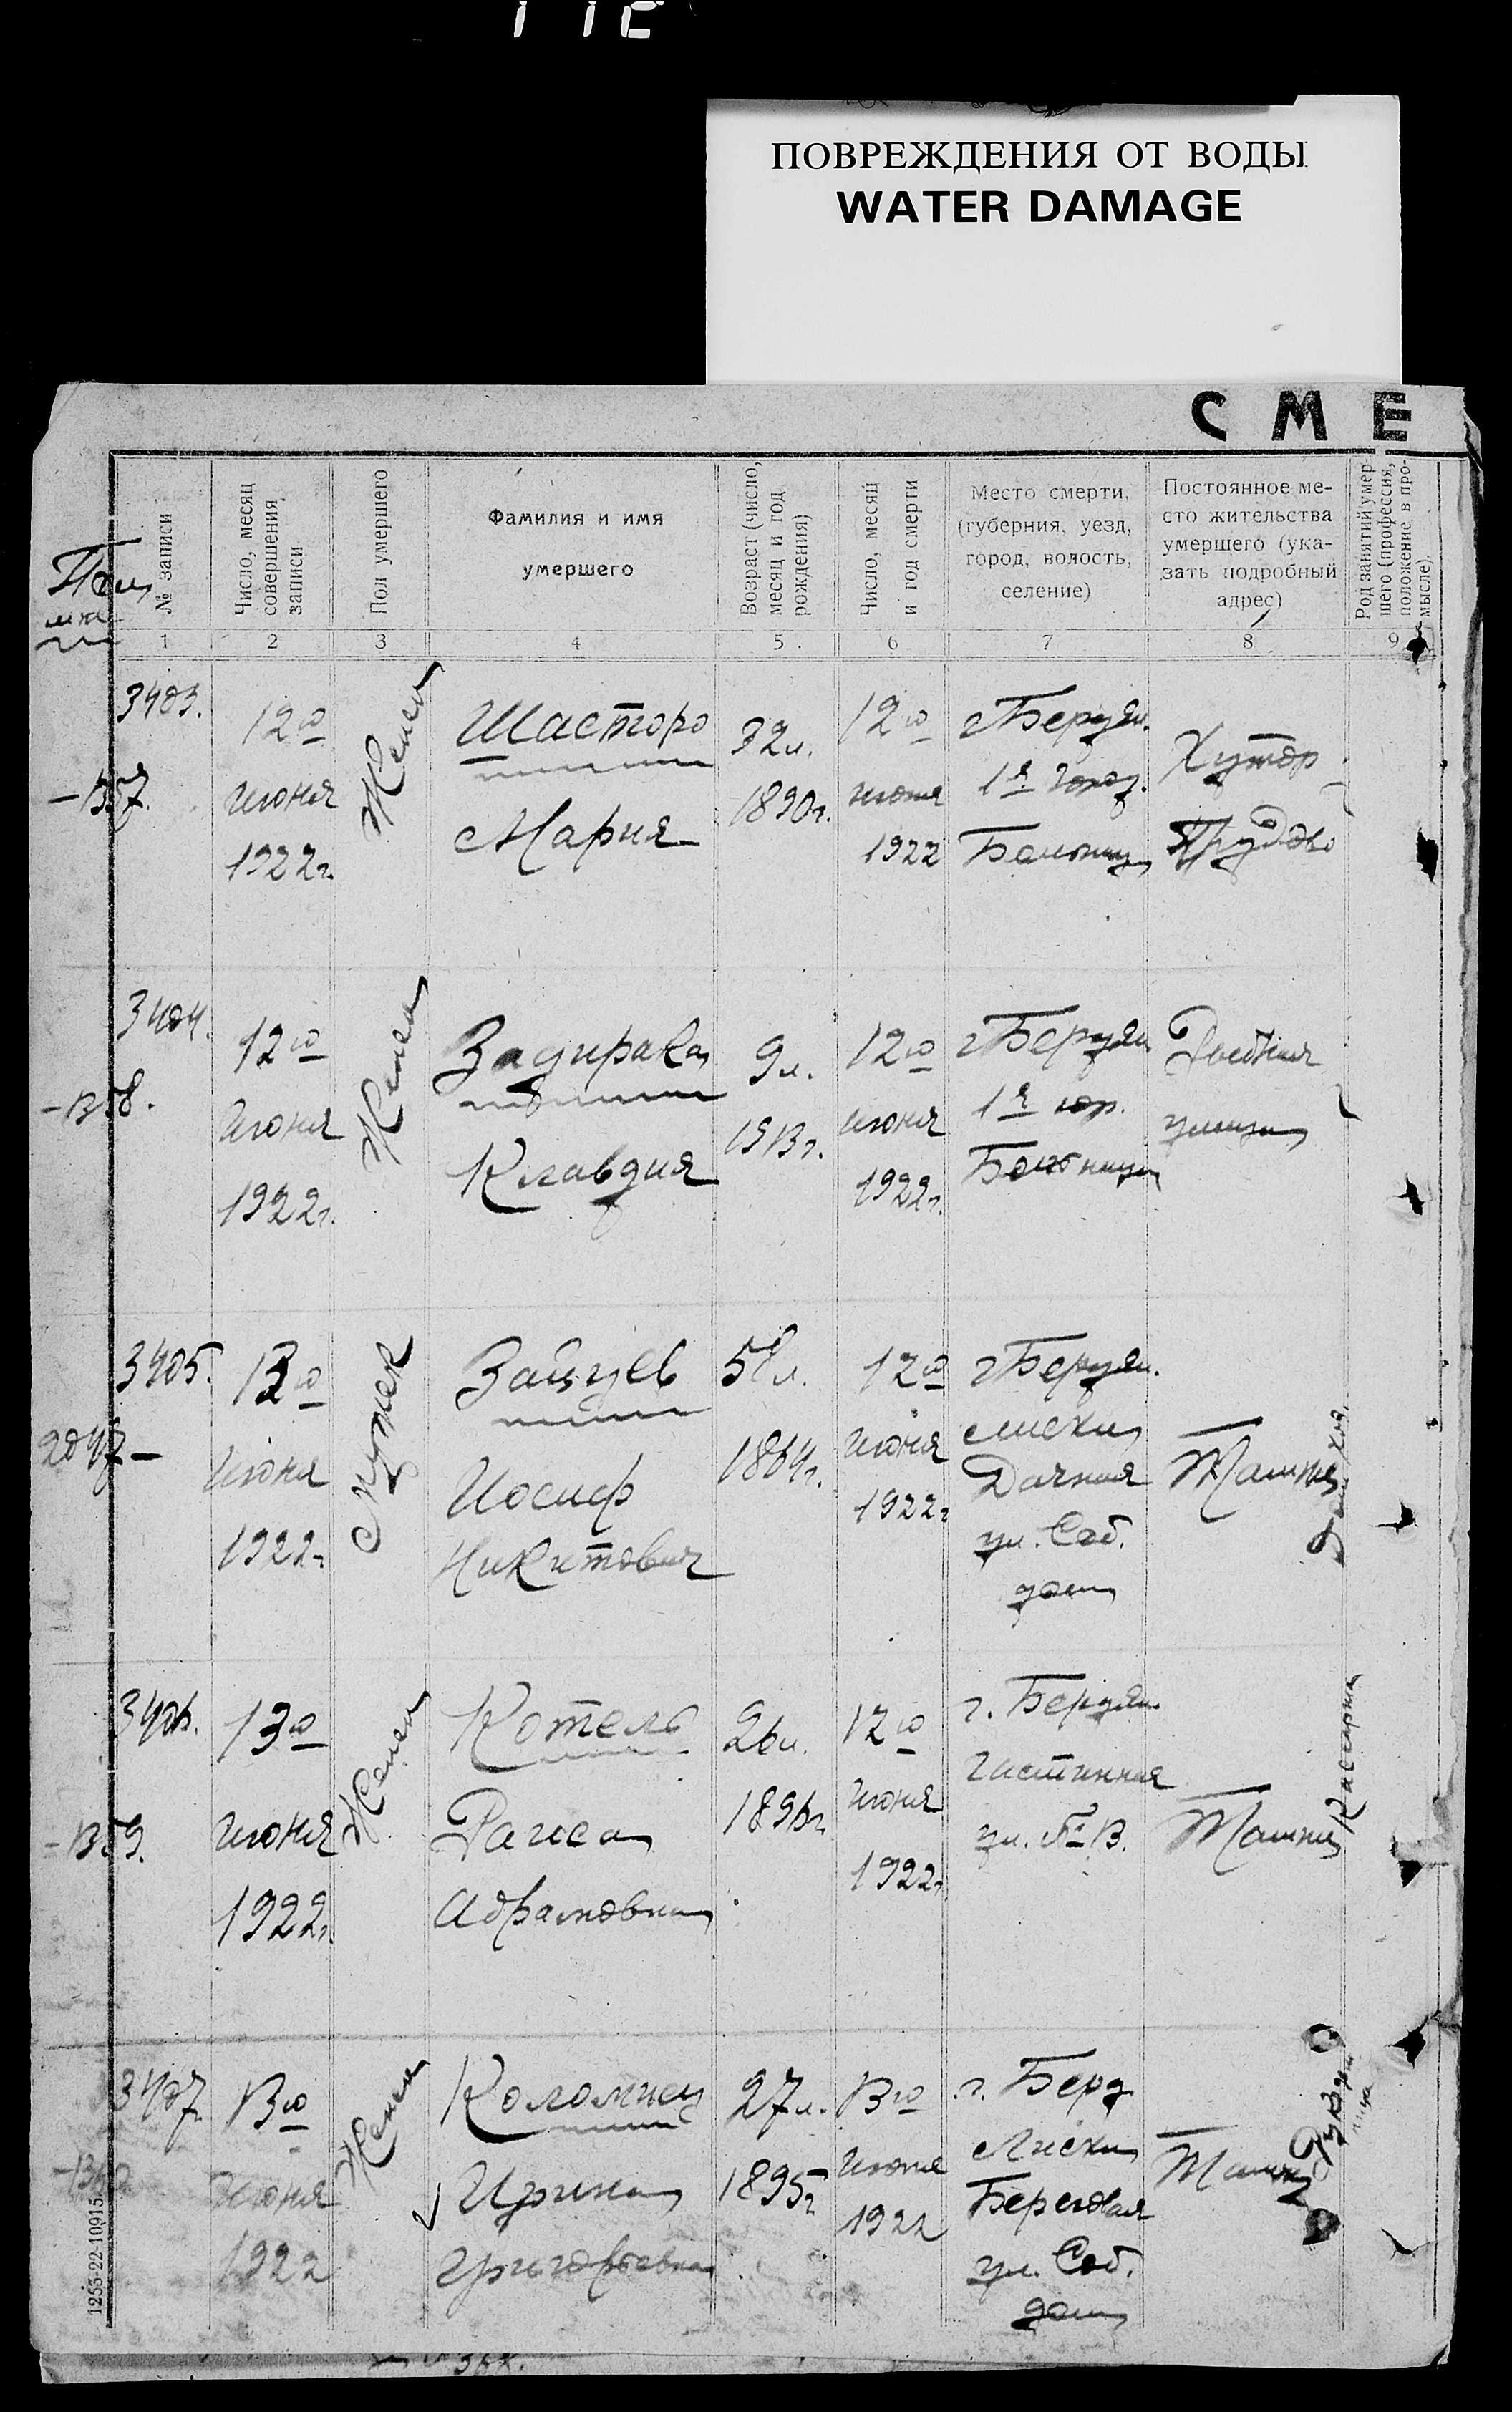 ПОВРЕЖДЕНИЯ ОТ ВОДЫ
WATER DAMAGE
СМЕ
№ записи
Число, месяц
совершения
записи
Пол умершего
Фамилия и имя
умершего
Возраст (число,
месяц и год
рождения)
Число, месяц
и год смерти
Место смерти,
(губерния, уезд,
город, волость,
селение)
Постоянное ме-
сто жительства
умершего (ука-
зать подробный
адрес)
Род занятий умер-
шего (профессия,
положение в про-
мысле).
1 2 3 4 5 6 7 8 9
3403.
12го
июня
1922г.
Женск
Шасторо
Мария
32л.
1890г.
12го
июня
1922
г Бердян.
1я город.
Больниц
Хутор
3404.
12го
июня
1922г.
Женск
Задирака
Клавдия
9л.
1913г.
12го
июня
1922г.
г Бердян
1я гор.
Больница
улица
3405.
2047-
13го
июня
1922г
Мужск
Зайцев
Иосиф
Никитович
58л.
1864г.
12го
июня
1922г
г Бердян.
Лиски
Дачная
ул. Соб.
дом
Там же
3406.
13го
июня
1922г.
Женск
Котель
Раиса
Абрамовна
26л.
1896г.
12го
июня
1922г
г. Бердян.
ул. № 13.
Там же
3407
13го
июня
1922
Женск
Коломиец
Ирина
Григорьевна
27л.
1895г
13го
июня
1922
г. Берд
Лиски
Береговая
ул. Соб.
дом
Там же
1255-22-10915